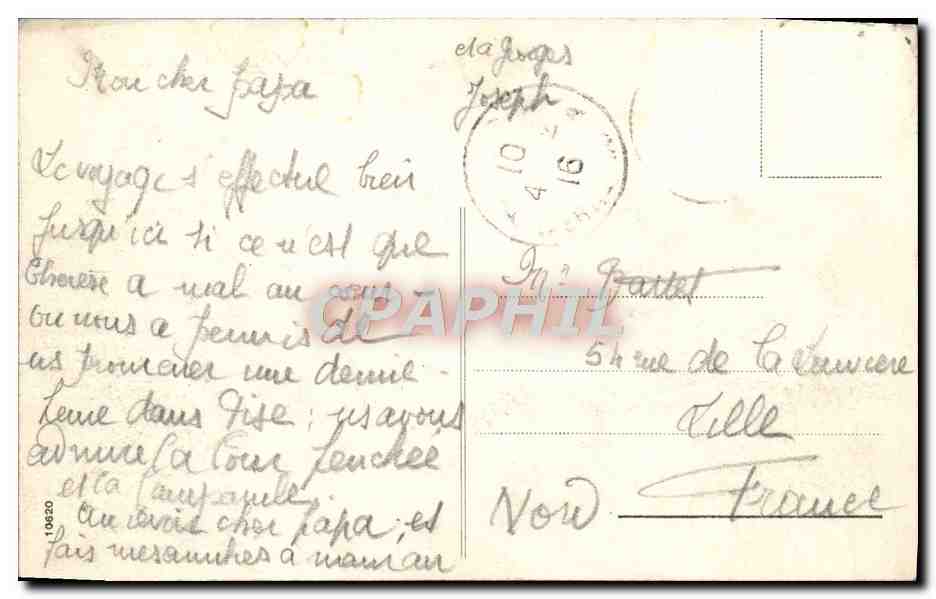 Mon cher papa
Le voyage s'effectue bien
jusqu'ici si ce n'est que
Thérèse a mal au
on nous a permis de
ns promener une demie
heure dans Pise ; ns avons
admiré la Tour penchée
et la Campanile.
au revoir cher papa, et
fais mes amitiés à maman
et à Georges
Joseph
10 4 16
Mr Battet
54 rue de la Louviere
Lille
Nord France
10620
CPAPHIL